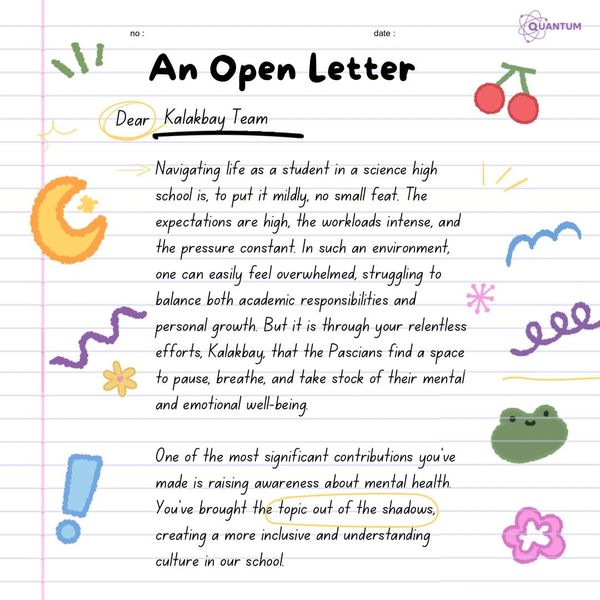 QUANTUM
no :
date :
An Open Letter
Dear Kalakbay Team
Navigating life as a student in a science high
school is, to put it mildly, no small feat. The
expectations are high, the workloads intense, and
the pressure constant. In such an environment,
one can easily feel overwhelmed, struggling to
balance both academic responsibilities and
personal growth. But it is through your relentless
efforts, Kalakbay, that the Pascians find a space
to pause, breathe, and take stock of their mental
and emotional well-being.
One of the most significant contributions you've
made is raising awareness about mental health.
You've brought the topic out of the shadows,
creating a more inclusive and understanding
culture in our school.